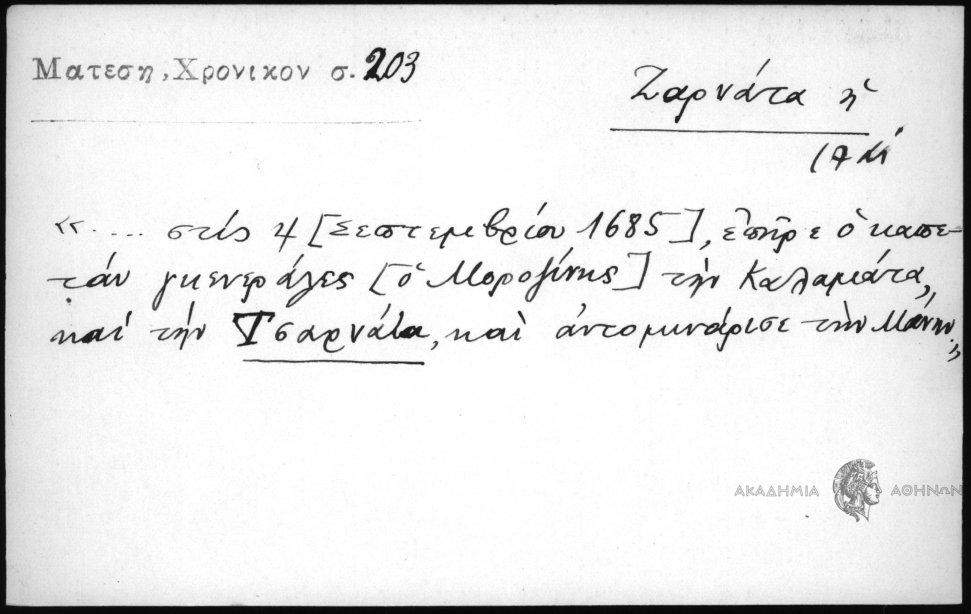 Ματεση, Χρονικον σ. 203
Ζαρνάτα ἡ
«.... στίς 4 [Σεπτεμβρίου 1685], ἐπῆρε ὁ καπε-
τάν γκενεράλες [ὁ Μοροζίνης] τήν Καλαμάτα,
καί τήν Τσαρνάτα, καὶ ἀντομινάρισε τήν Μάνην.»
ΑΚΑΔΗΜΙΑ ΑΘΗΝΩΝ